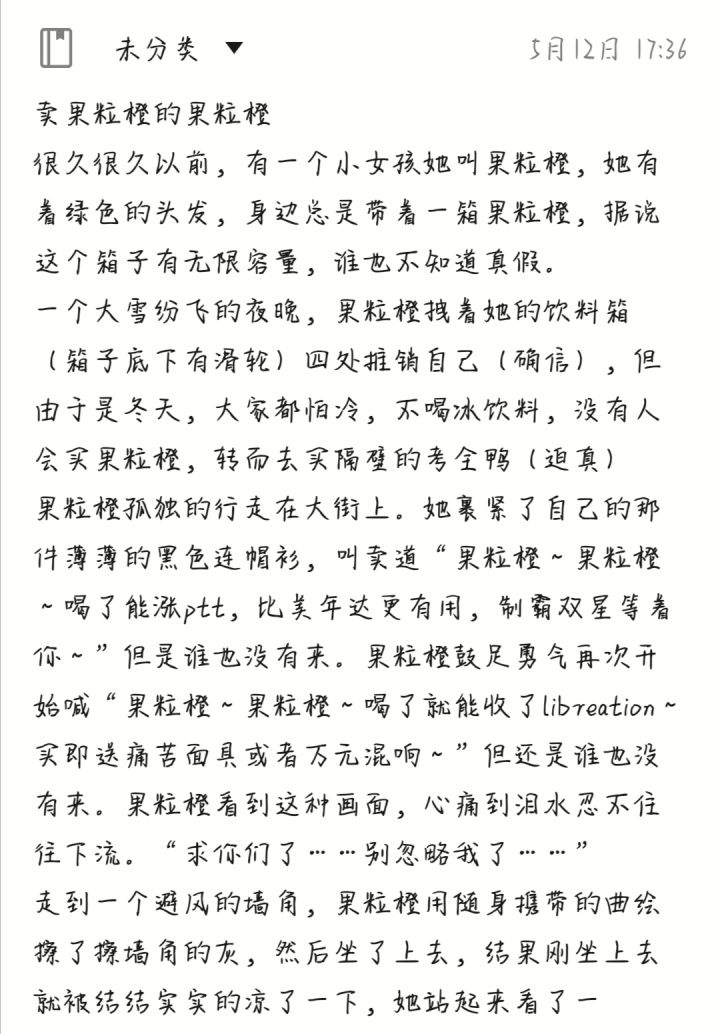 未分类
5月12日 17:36
卖果粒橙的果粒橙
很久很久以前，有一个小女孩她叫果粒橙，她有
着绿色的头发，身边总是带着一箱果粒橙，据说
这个箱子有无限容量，谁也不知道真假。
一个大雪纷飞的夜晚，果粒橙拽着她的饮料箱
（箱子底下有滑轮）四处推销自己（确信），但
由于是冬天，大家都怕冷，不喝冰饮料，没有人
会买果粒橙，转而去买隔壁的考全鸭（迫真）
果粒橙孤独的行走在大街上。她裹紧了自己的那
件薄薄的黑色连帽衫，叫卖道“果粒橙~果粒橙
~喝了能涨ptt，比美年达更有用，制霸双星等着
你~”但是谁也没有来。果粒橙鼓足勇气再次开
始喊“果粒橙~果粒橙~喝了就能收了libreation~
买即送痛苦面具或者万元混响~”但还是谁也没
有来。果粒橙看到这种画面，心痛到泪水忍不住
往下流。“求你们了……别忽略我了……”
走到一个避风的墙角，果粒橙用随身携带的曲绘
擦了擦墙角的灰，然后坐了上去，结果刚坐上去
就被结结实实的凉了一下，她站起来看了一